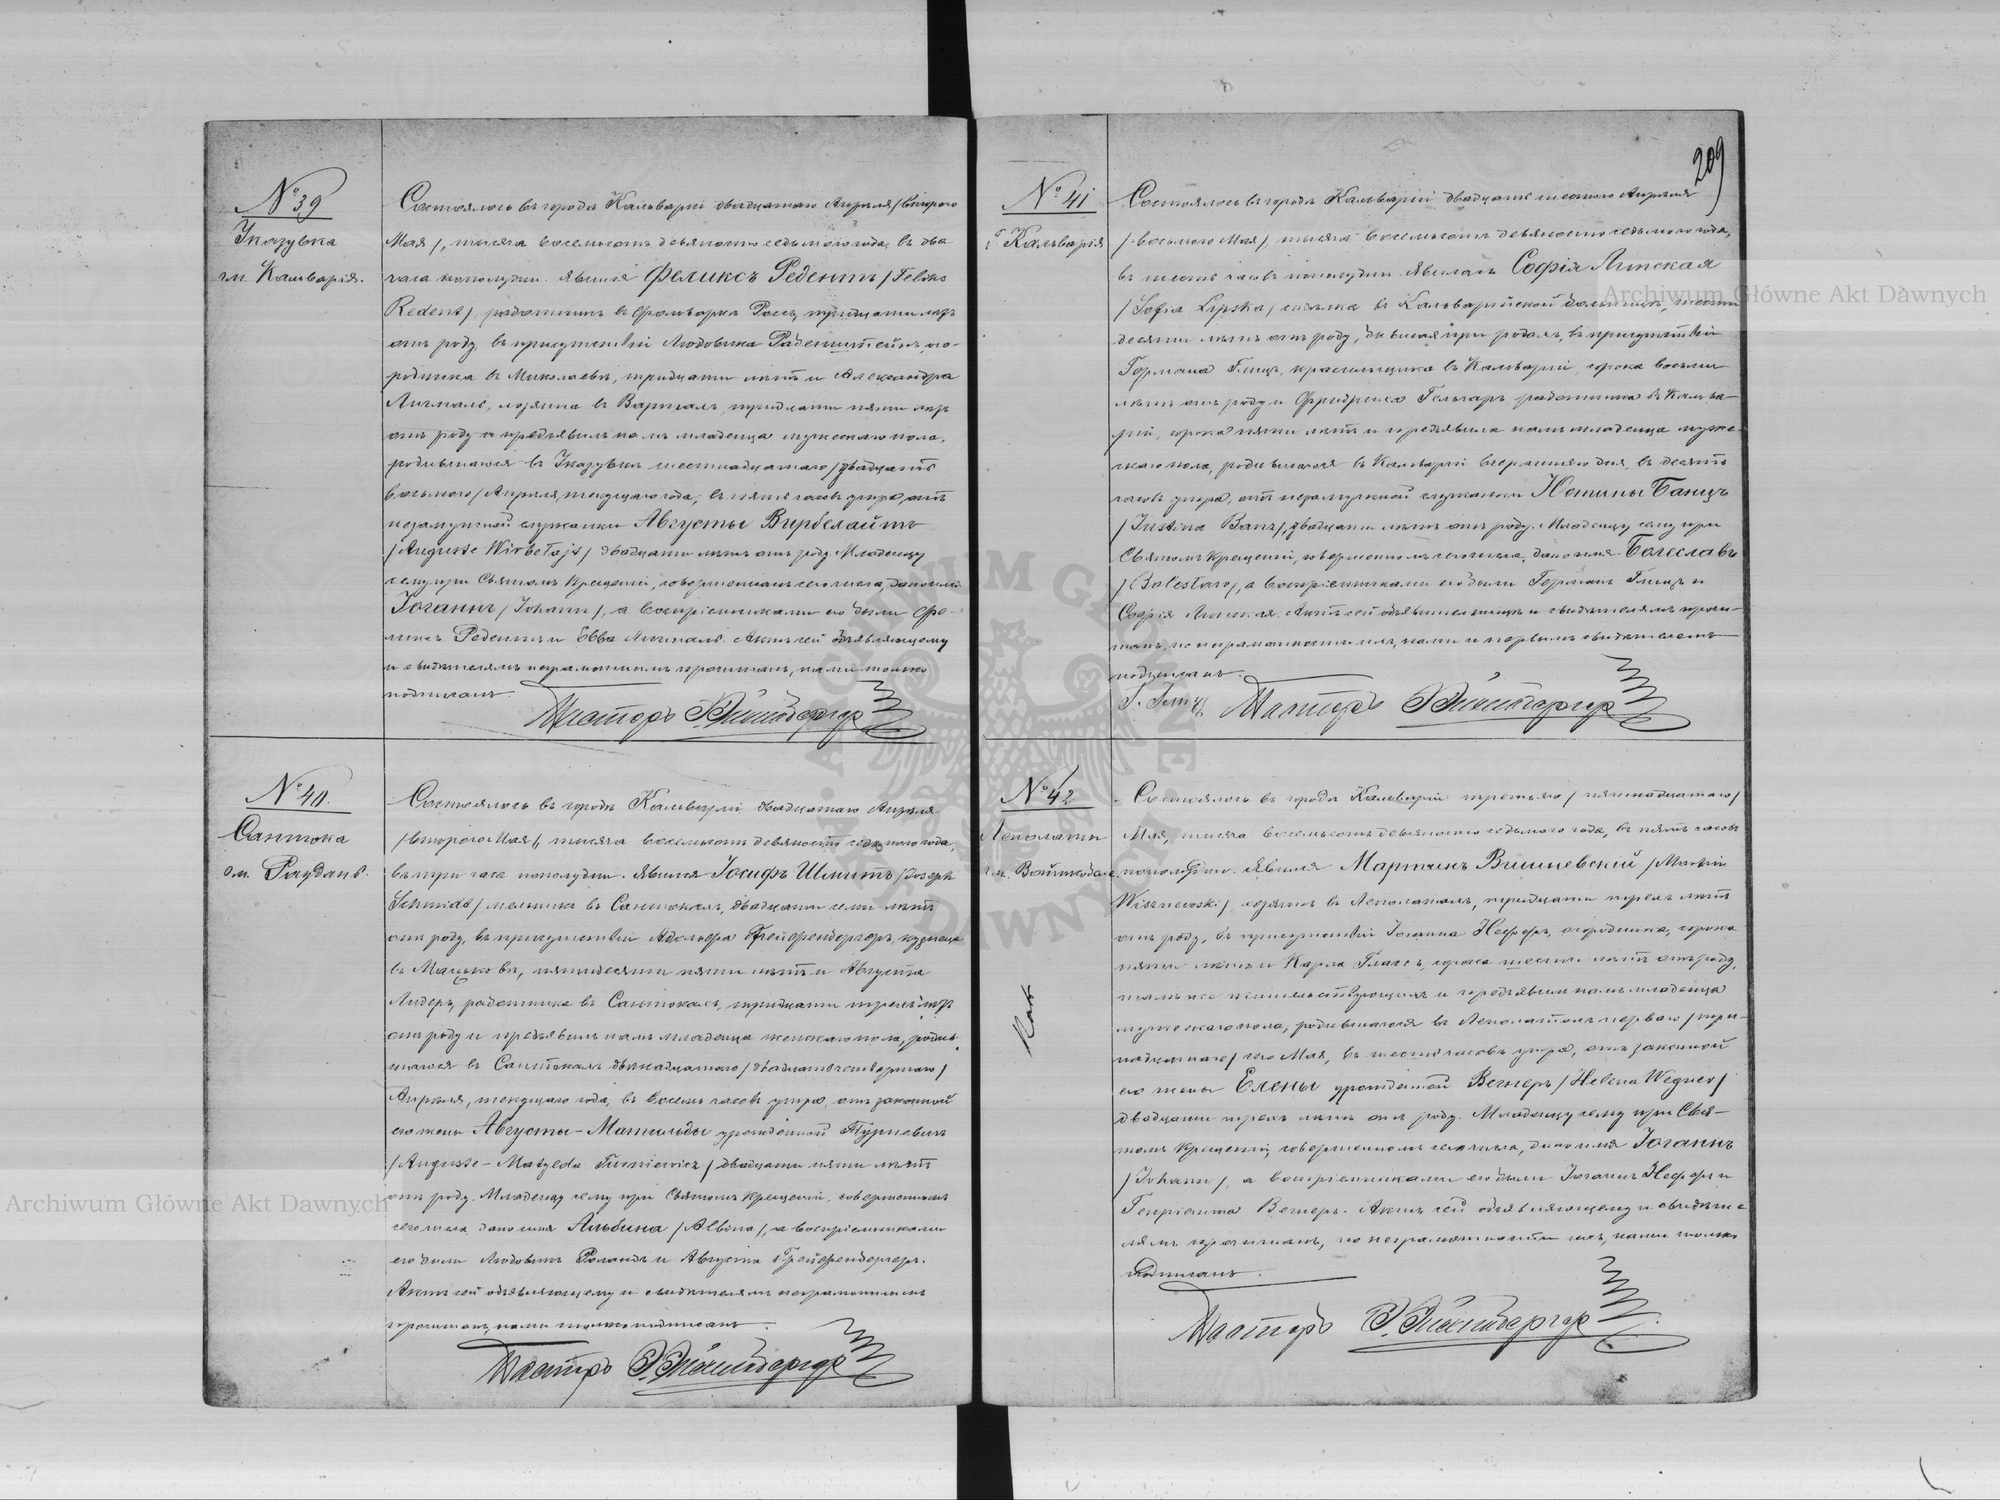 № 39
Іказувка
гм. Кальварія.
Состоялось въ городѣ Кальваріи двадцатаго Апрѣля /втораго
Мая/, тысяча восемьсотъ девяносто седьмого года, въ два
часа пополудни. Явился Феликсъ Редентъ /Feliks
Redent/, работникъ въ фольваркѣ Россь, тридцати лѣтъ
отъ роду, въ присутствіи Людовика Раденштейнъ, ого-
родника въ Миколаевкѣ, тридцати лѣтъ и Александра
Лигмаль, хозяина въ Вартеляхъ, тридцати пяти лѣтъ
отъ роду и предъявилъ намъ младенца мужескаго пола,
родившагося въ Іказувкѣ шестнадцатаго /двадцать
восьмого/ Апрѣля, текущаго года, въ пять часовъ утра, отъ
незамужной служанки Августы Вирбелайтъ
/Auguste Wirbełajt/ двадцати лѣтъ отъ роду. Младенцу
сему при Святомъ Крещеніи, совершенномъ сего числа, дано имя
Іоганнъ /Johann/, а воспріемниками его были Фе-
ликсъ Редентъ и Евва Лигмаль. Актъ сей объявляющему
и свидѣтелямъ неграмотнымъ прочитанъ, нами только
подписанъ.
Пасторъ
№ 40.
Сантока
гм. Раудань.
Состоялось въ городѣ Кальваріи двадцатаго Апрѣля
/втораго Мая/, тысяча восемьсотъ девяносто седьмого года,
въ три часа пополудни. Явился Іосифъ Шмитъ /Joseph
Schmidt/ мельникъ въ Сантокахъ, двадцати семи лѣтъ
отъ роду, въ присутствіи Адольфа Грейфенбергеръ, кузнеца
въ Мацьковѣ, пятидесяти пяти лѣтъ и Августа
Лидеръ, работника въ Сантокахъ, тридцати трехъ лѣтъ
отъ роду и предъявилъ намъ младенца женскаго пола, родив-
шагося въ Сантокахъ двѣнадцатаго /двадцать четвертаго/
Апрѣля, текущаго года, въ восемь часовъ утра, отъ законной
его жены Августы-Матильды урожденной Турневичъ
/Auguste-Matylda Turniewicz/ двадцати пяти лѣтъ
отъ роду. Младенцу сему при Святомъ Крещеніи, совершенномъ
сего числа, дано имя Альбина /Albina/, а воспріемниками
его были Людовикъ Роландъ и Августа Грейфенбергеръ.
Актъ сей объявляющему и свидѣтелямъ неграмотнымъ
прочитанъ, нами только подписанъ.
Пасторъ
209
№ 41
г. Кальварія
Состоялось въ городѣ Кальваріи двадцать шестого Апрѣля
/восьмого Мая/, тысяча восемьсотъ девяносто седьмого года,
въ шесть часовъ пополудни. Явилась Софія Липская
/Sofia Lipska/, сидѣлка въ Кальварійской больницѣ, шести
десяти лѣтъ отъ роду, бывшая при родахъ, въ присутствіи
Германа Глицъ, красильщика въ Кальваріи, сорока восьми
лѣтъ отъ роду и Фридриха Гельгаръ, работника въ Кальва-
ріи, сорока пяти лѣтъ и предъявила намъ младенца муже-
скаго пола, родившагося въ Кальваріи вчерашняго дня, въ десять
часовъ утра, отъ незамужной служанки Юстины Банцъ
/Justina Banz/, двадцати лѣтъ отъ роду. Младенцу сему при
Святомъ Крещеніи, совершенномъ сего числа, дано имя Болеславъ
/Bolesław/, а воспріемниками его были Германъ Глицъ и
Софія Липская. Актъ сей объявительницѣ и свидѣтелямъ прочи-
танъ, по неграмотности ихъ, нами и первымъ свидѣтелемъ
подписанъ.
Г. Глицъ Пасторъ
№ 42
Леполаты
гм. Войткоболе
Кат
Состоялось въ городѣ Кальваріи третьяго /пятнадцатаго/
Мая, тысяча восемьсотъ девяносто седьмого года, въ пять часовъ
пополудни. Явился Мартинъ Вишневскій /Martin
Wiszniewski/, хозяинъ въ Леполатахъ, тридцати трехъ лѣтъ
отъ роду, въ присутствіи Іоганна Нефферъ, огородника, сорока
пяти лѣтъ и Карла Глассъ, сорока шести лѣтъ отъ роду,
тамъ же жительствующихъ и предъявилъ намъ младенца
мужескаго пола, родившагося въ Леполатахъ перваго /три-
надцатаго/ сего Мая, въ шесть часовъ утра, отъ законной
его жены Елены урожденной Вегнеръ /Helena Wegner/
двадцати трехъ лѣтъ отъ роду. Младенцу сему при Свя-
томъ Крещеніи, совершенномъ сего числа, дано имя Іоганнъ
/Johann/, а воспріемниками его были Іоганнъ Нефферъ и
Генріетта Вегнеръ. Актъ сей объявляющему и свидѣте-
лямъ прочитанъ, по неграмотности ихъ, нами только
подписанъ.
Пасторъ
Archiwum Główne Akt Dawnych
Archiwum Główne Akt Dawnych